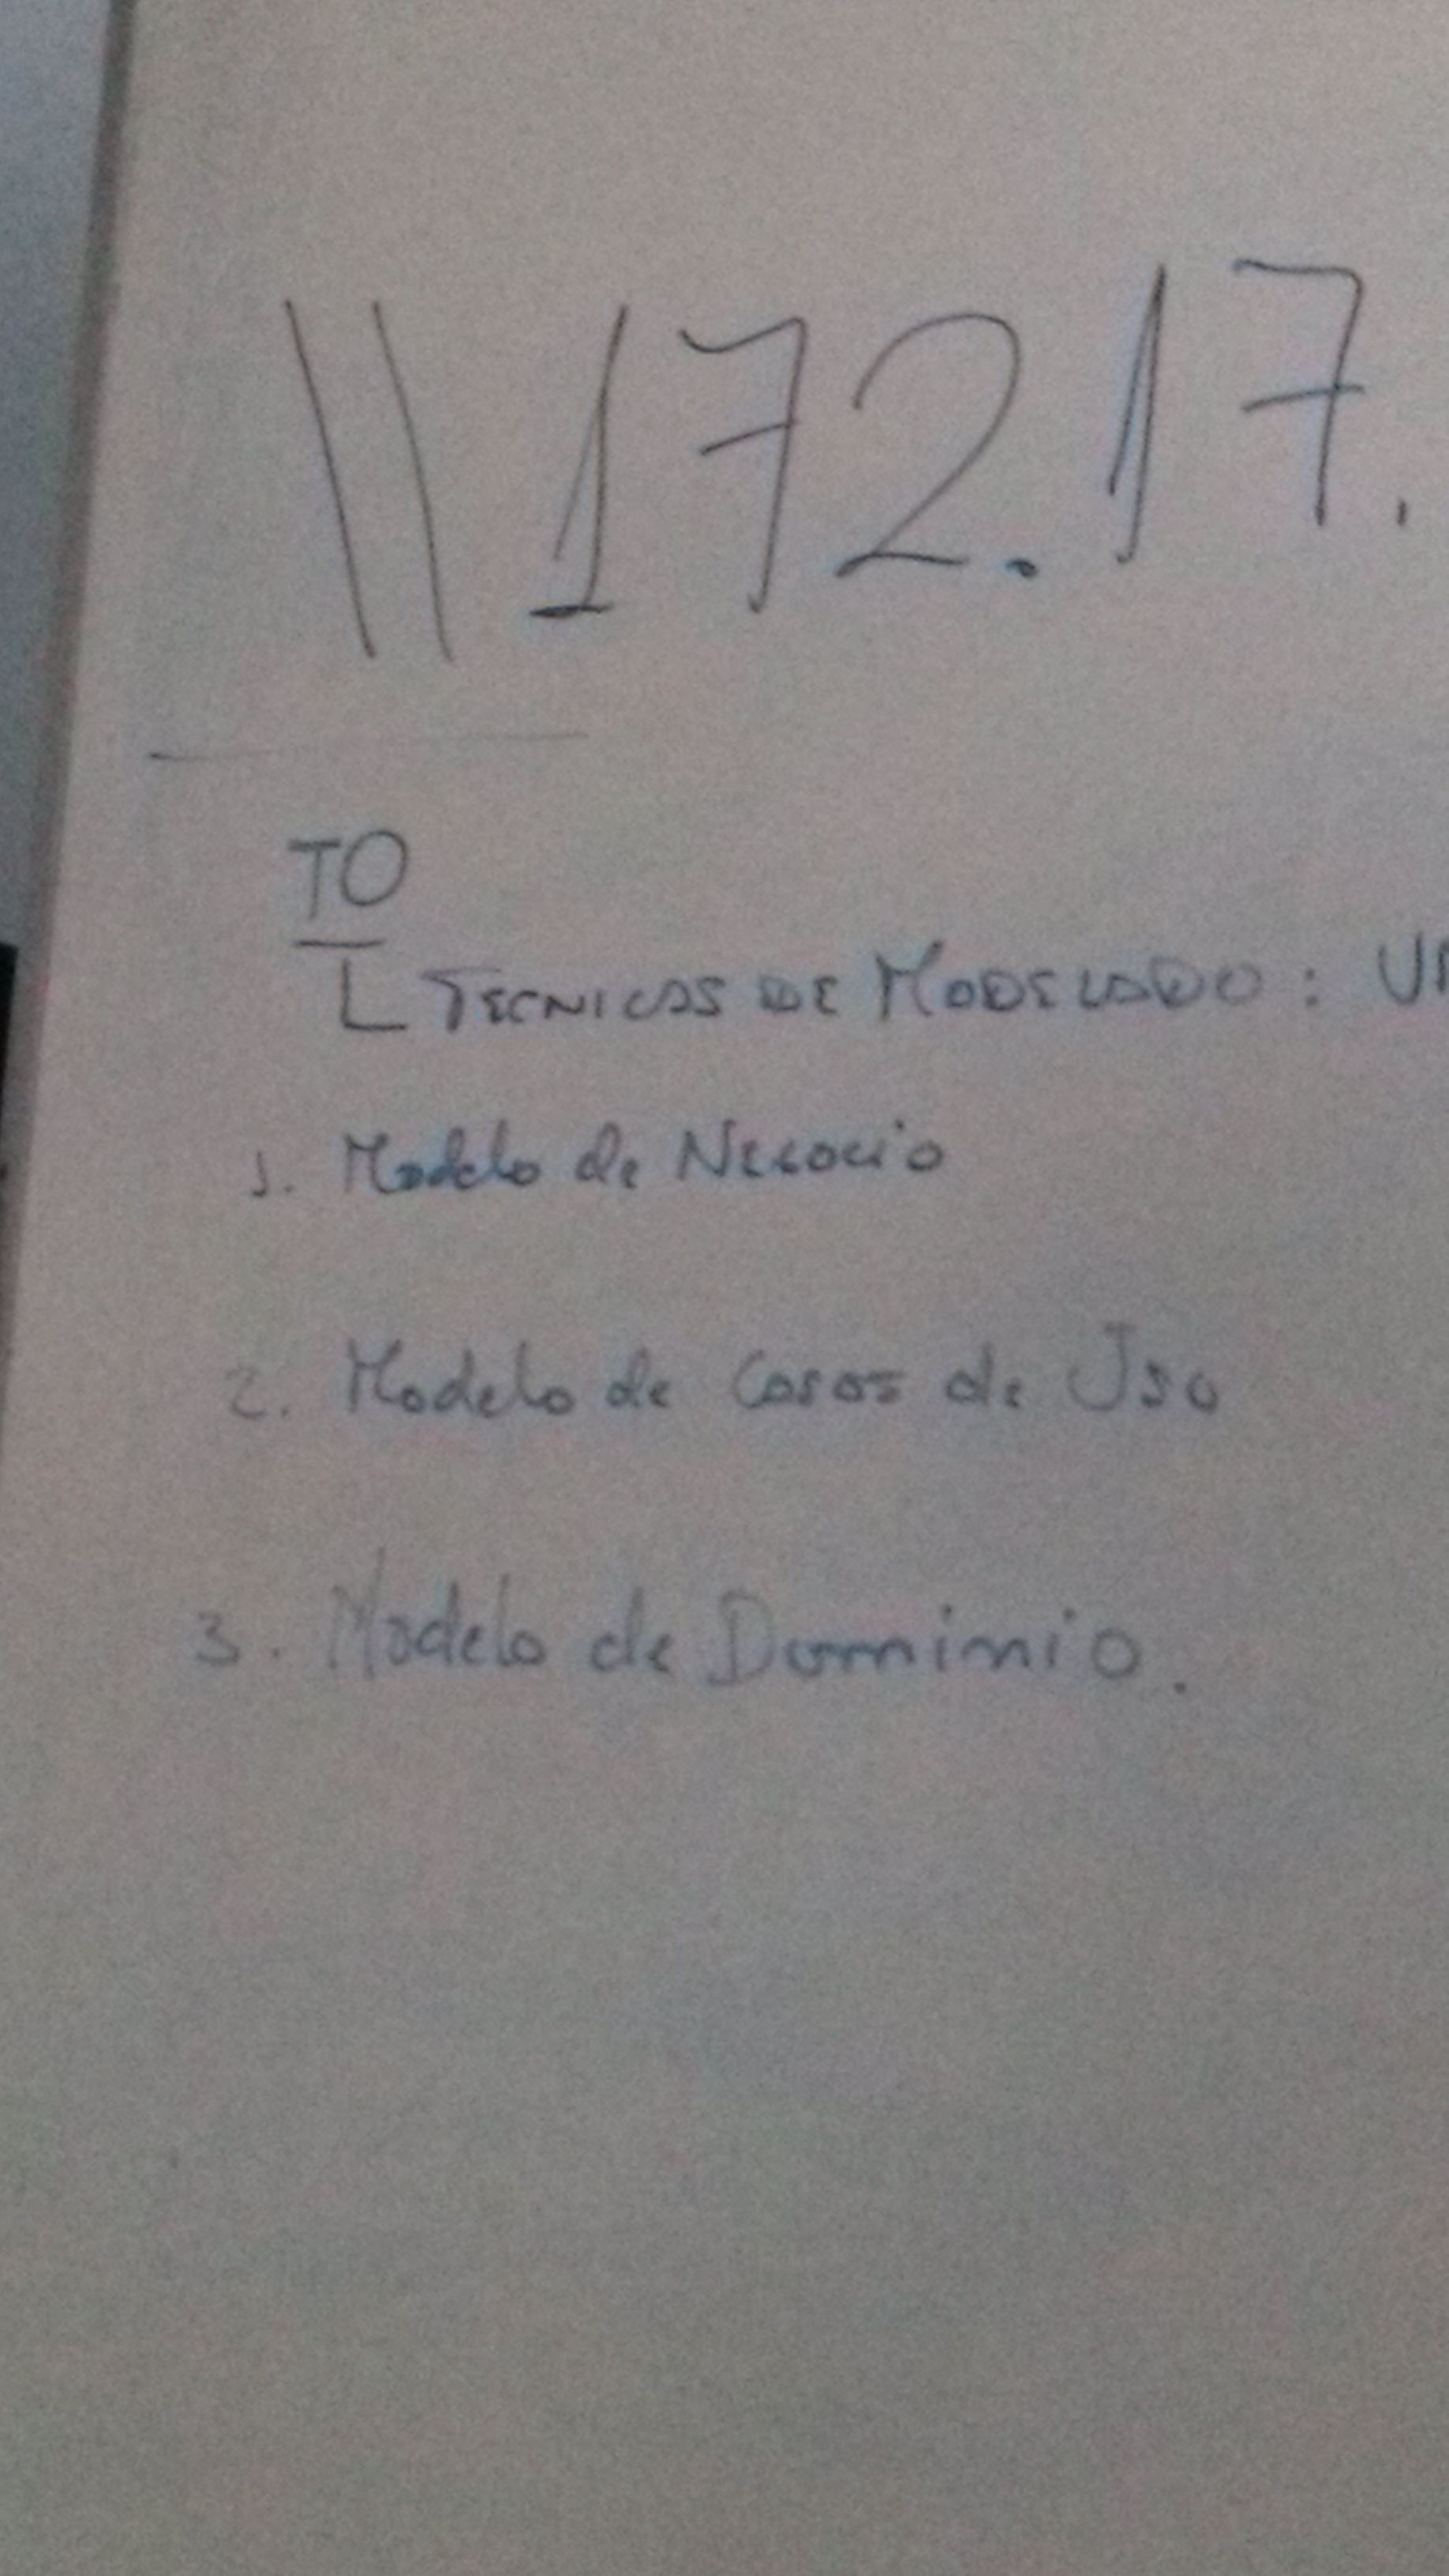 \\172.17.
TO
TECNICAS DE MODELADO:
1. Modelo de Negocio
2. Modelo de Casos de Uso
3. Modelo de Dominio.